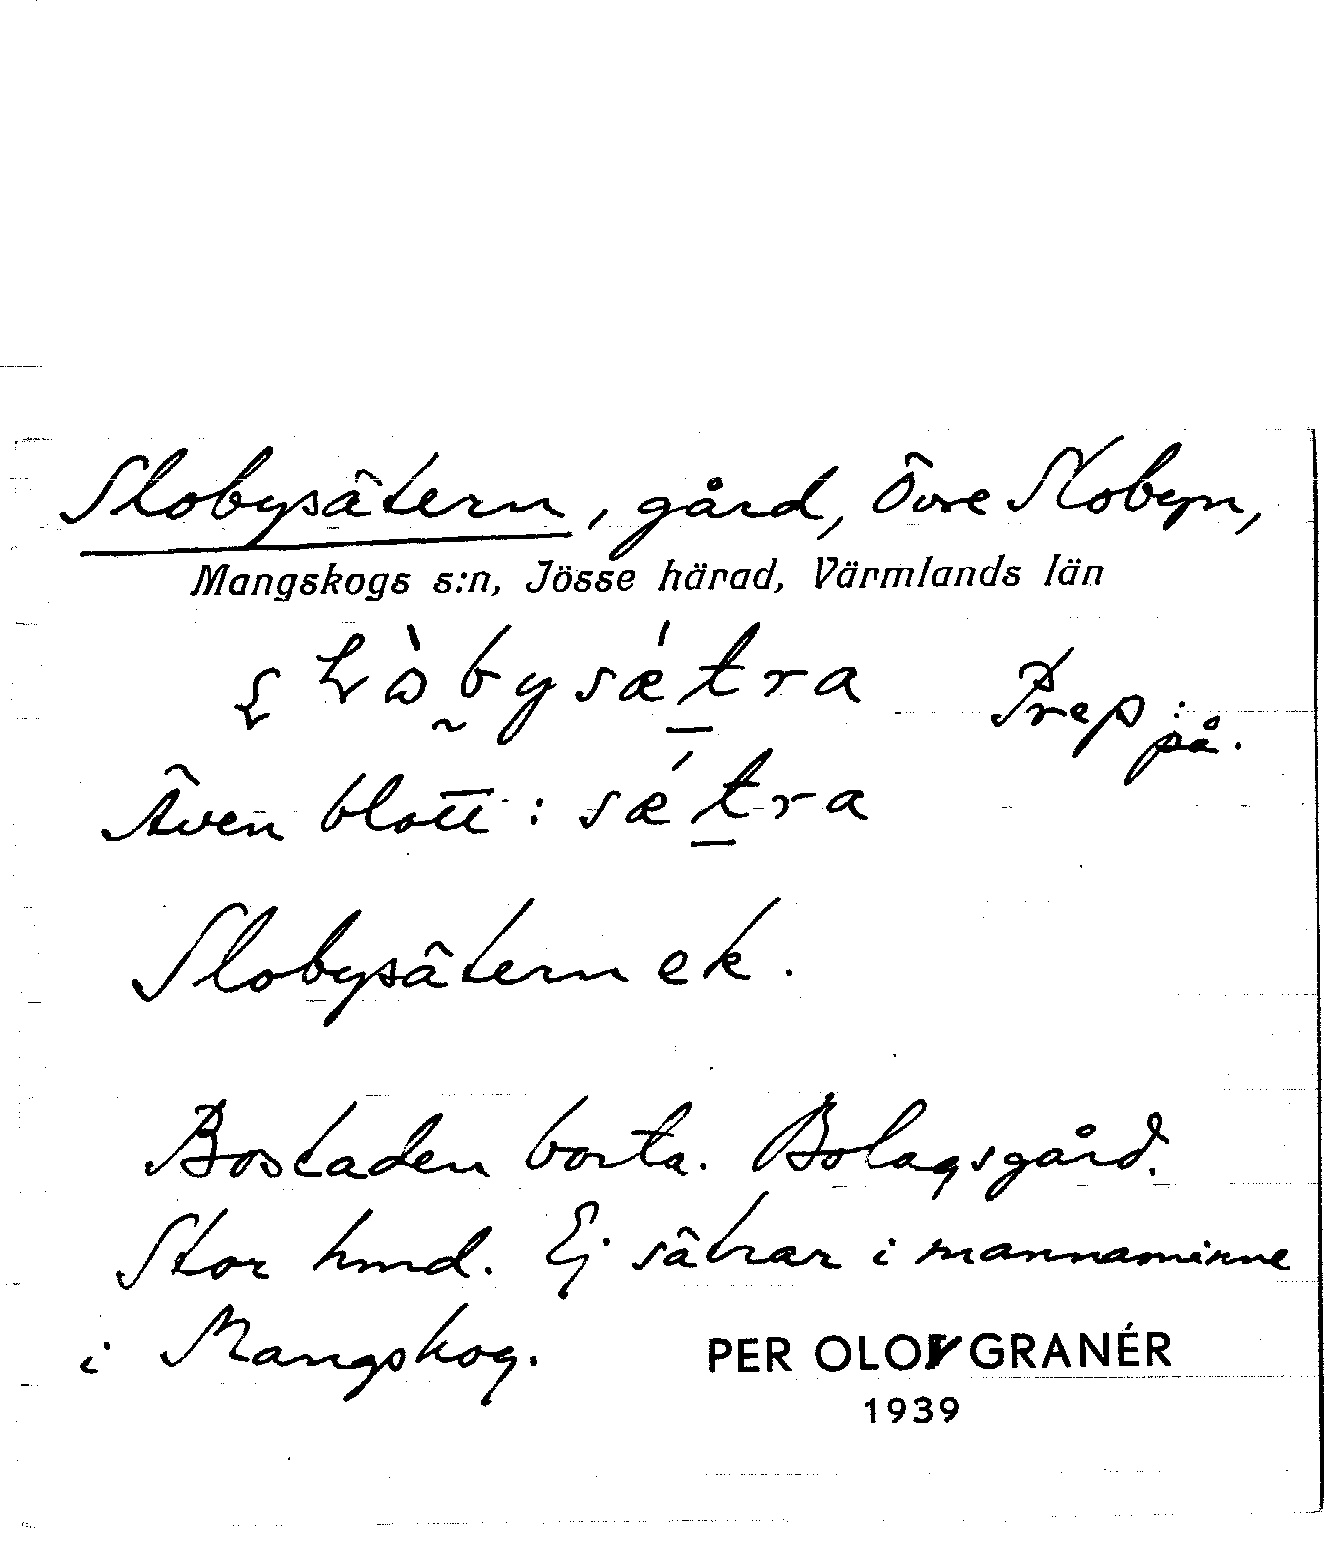 Slobysätern, gård, Övre Slobyn,
Mangskogs s:n, Jösse härad, Värmlands län
bysætra Prep: på.
Även blott: sǽtra
Slobysätern ek.
Bostaden borta. Bolagsgård.
Stor hmd. Ej sätrar i mannaminne
i Mangskog.
PER OLOV GRANÉR
1939